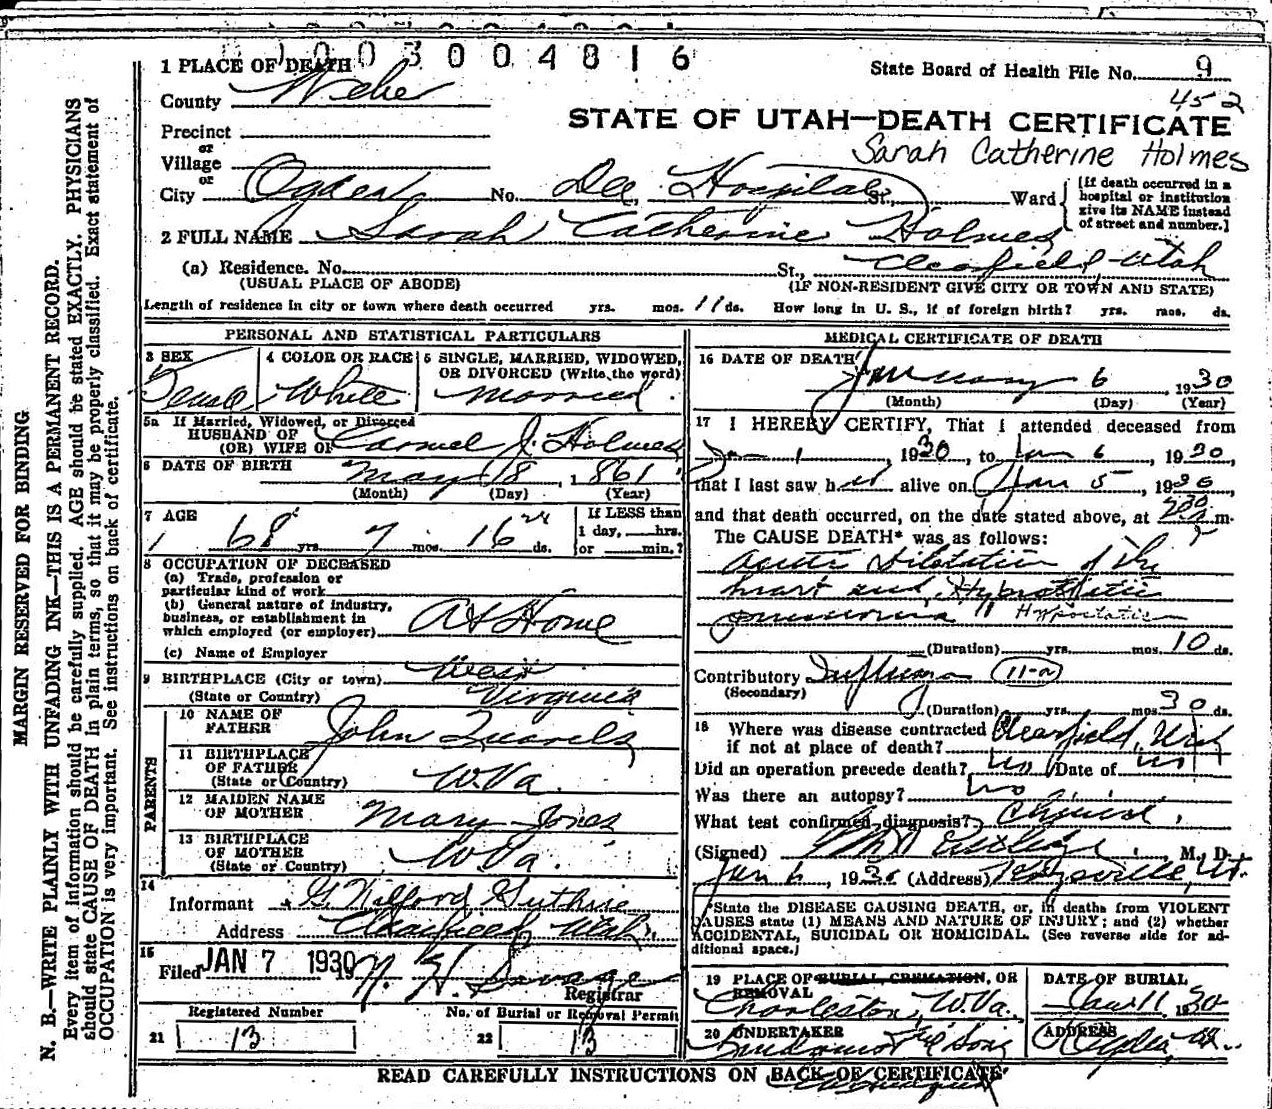 0 0 3 0 0 4 8 1 6
1 PLACE OF DEATH
State Board of Health File No. 9
County Weber
452
STATE OF UTAH—DEATH CERTIFICATE
Precinct
or
Sarah Catherine Holmes
Village
or
City Ogden No. Dee Hospital St., Ward
[If death occurred in a
hospital or institution
give its NAME instead
of street and number.]
2 FULL NAME Sarah Catherine Holmes
(a) Residence. No. St., Clearfield, Utah
(USUAL PLACE OF ABODE) (IF NON-RESIDENT GIVE CITY OR TOWN AND STATE)
Length of residence in city or town where death occurred yrs. mos. 11 ds. How long in U. S., if of foreign birth? yrs. mos. ds.
PERSONAL AND STATISTICAL PARTICULARS
3 SEX 4 COLOR OR RACE 5 SINGLE, MARRIED, WIDOWED,
OR DIVORCED (Write the word)
Female White Married
5a If Married, Widowed, or Divorced
HUSBAND OF
(OR) WIFE OF J. Holmes
6 DATE OF BIRTH May 18, 1861
(Month) (Day) (Year)
7 AGE
If LESS than
1 day, hrs.
or min.?
68 yrs. 7 mos. 16 ds.
8 OCCUPATION OF DECEASED
(a) Trade, profession or
particular kind of work
(b) General nature of industry,
business, or establishment in
which employed (or employer) At Home
(c) Name of Employer
9 BIRTHPLACE (City or town) West
(State or Country) Virginia
PARENTS
10 NAME OF
FATHER John
11 BIRTHPLACE
OF FATHER
(State or Country) W.Va.
12 MAIDEN NAME
OF MOTHER Mary Jones
13 BIRTHPLACE
OF MOTHER
(State or Country) W.Va.
14
Informant Wilford Guthrie
Address Clearfield, Utah.
15
Filed JAN 7 1930 Savage
Registrar
Registered Number No. of Burial or Removal Permit
21 13 22 13
MEDICAL CERTIFICATE OF DEATH
16 DATE OF DEATH
January 6, 1930
(Month) (Day) (Year)
17 I HEREBY CERTIFY, That I attended deceased from
Jan 1, 1930, to Jan 6, 1930,
that I last saw her alive on Jan 5, 1930
and that death occurred, on the date stated above, at m.
The CAUSE DEATH* was as follows:
Acute Dilatation of the
heart and Hypostatic
pneumonia " Hypostatic
(Duration) yrs. mos. 10 ds.
Contributory Influenza 11-a
(Secondary)
(Duration) yrs. mos. 30 ds.
18 Where was disease contracted
if not at place of death? Clearfield, Utah
Did an operation precede death? no Date of no
Was there an autopsy? no
What test confirmed diagnosis? Clinical.
(Signed) M. D.
Jan 6, 1930 (Address) Kaysville, Ut.
*State the DISEASE CAUSING DEATH, or, in deaths from VIOLENT
CAUSES state (1) MEANS AND NATURE OF INJURY; and (2) whether
ACCIDENTAL, SUICIDAL OR HOMICIDAL. (See reverse side for ad-
ditional space.)
19 PLACE OF BURIAL, CREMATION, OR
REMOVAL
DATE OF BURIAL
Charleston, W.Va. Jan 11 1930
20 UNDERTAKER ADDRESS
& Sons Ogden, Ut.
READ CAREFULLY INSTRUCTIONS ON BACK OF CERTIFICATE
MARGIN RESERVED FOR BINDING
N. B.—WRITE PLAINLY WITH UNFADING INK—THIS IS A PERMANENT RECORD.
Every item of information should be carefully supplied. AGE should be stated EXACTLY. PHYSICIANS
should state CAUSE OF DEATH in plain terms, so that it may be properly classified. Exact statement of
OCCUPATION is very important. See instructions on back of certificate.